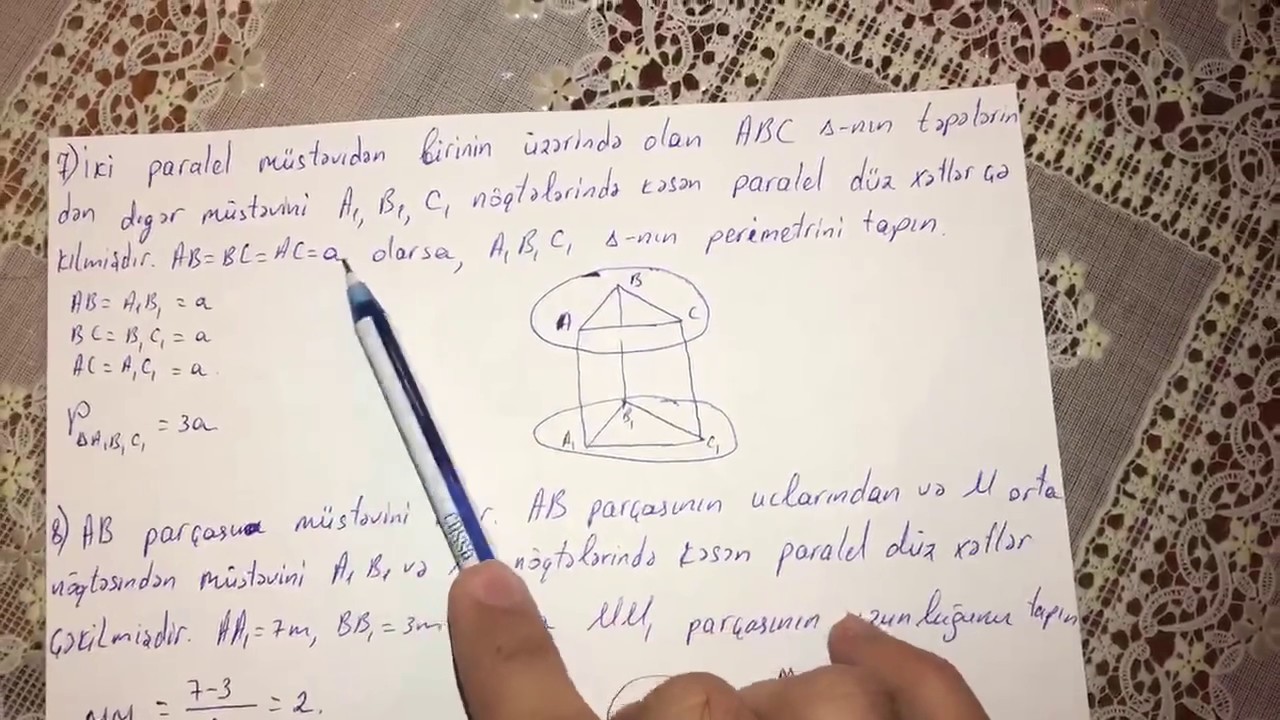 7) İki paralel müstəvidən birinin üzərində olan ABC Δ-nın təpələrin
dən digər müstəvini A₁, B₁, C₁ nöqtələrində kəsən paralel düz xətlər çə
kilmişdir. AB=BC=AC=a olarsa, A₁B₁C₁ Δ-nın perimetrini tapın.
AB=A₁B₁=a
BC=B₁C₁=a
AC=A₁C₁=a
P ΔA₁B₁C₁ = 3a
B
A
C
B₁
A₁
C₁
8) AB parçası müstəvini AB parçasının uclarından və M orta
nöqtəsindən müstəvini A₁ B₁ və nöqtələrində kəsən paralel düz xətlər
çəkilmişdir. AA₁=7m, BB₁=3m MM₁ parçasının uzunluğunu tapın
7-3
= 2.
M